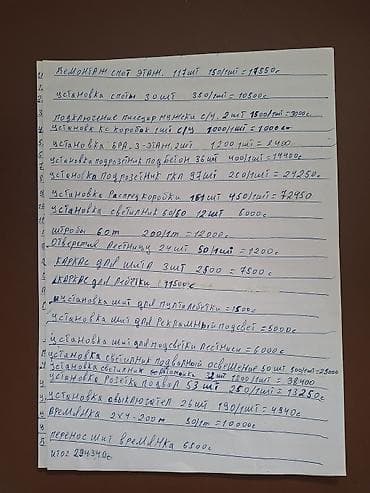 Демонтаж спот этаж. 117шт 150/1шт =17550с
установка споты 30шт 350/1шт =10500с
подключение писсуар мужски с/у. 2шт 1500/1шт =3000с
установка кс коробок 1шт с/у 1000/1шт =1000с
установка БРА. 3-этаж. 2шт 1200/1шт =2400
установка подрозетник под бетон 36шт 400/1шт =14400с
установка подрозетник ГКЛ 97шт 250/1шт =24250с
установка Распред коробки 161шт 450/1шт =72450
установка светилник 60/60 12шт 6000с
штробы 60м 200/1м =12000с
Отверстия лестницу 24шт 50/1шт =1200с
каркас для щита 3шт 2500 =7500с
каркас для лебетки 11500с
установка шит для пулта лебетки =1500с
установка шит для рекламный подсвет =5000с
установка шит для подсветки лестниси =6000с
установка светилник подвалный освешение 50шт 500/1шт =25000
установка светилник 32шт 1200/1шт =38400
установка розетка подвал 53шт 250/1шт =13250с
установка выключател 26шт 190/1шт =4940с
времянка 2х4-200м 50/1м =10000с
перенос шит времянка 6500с
итог 294340с